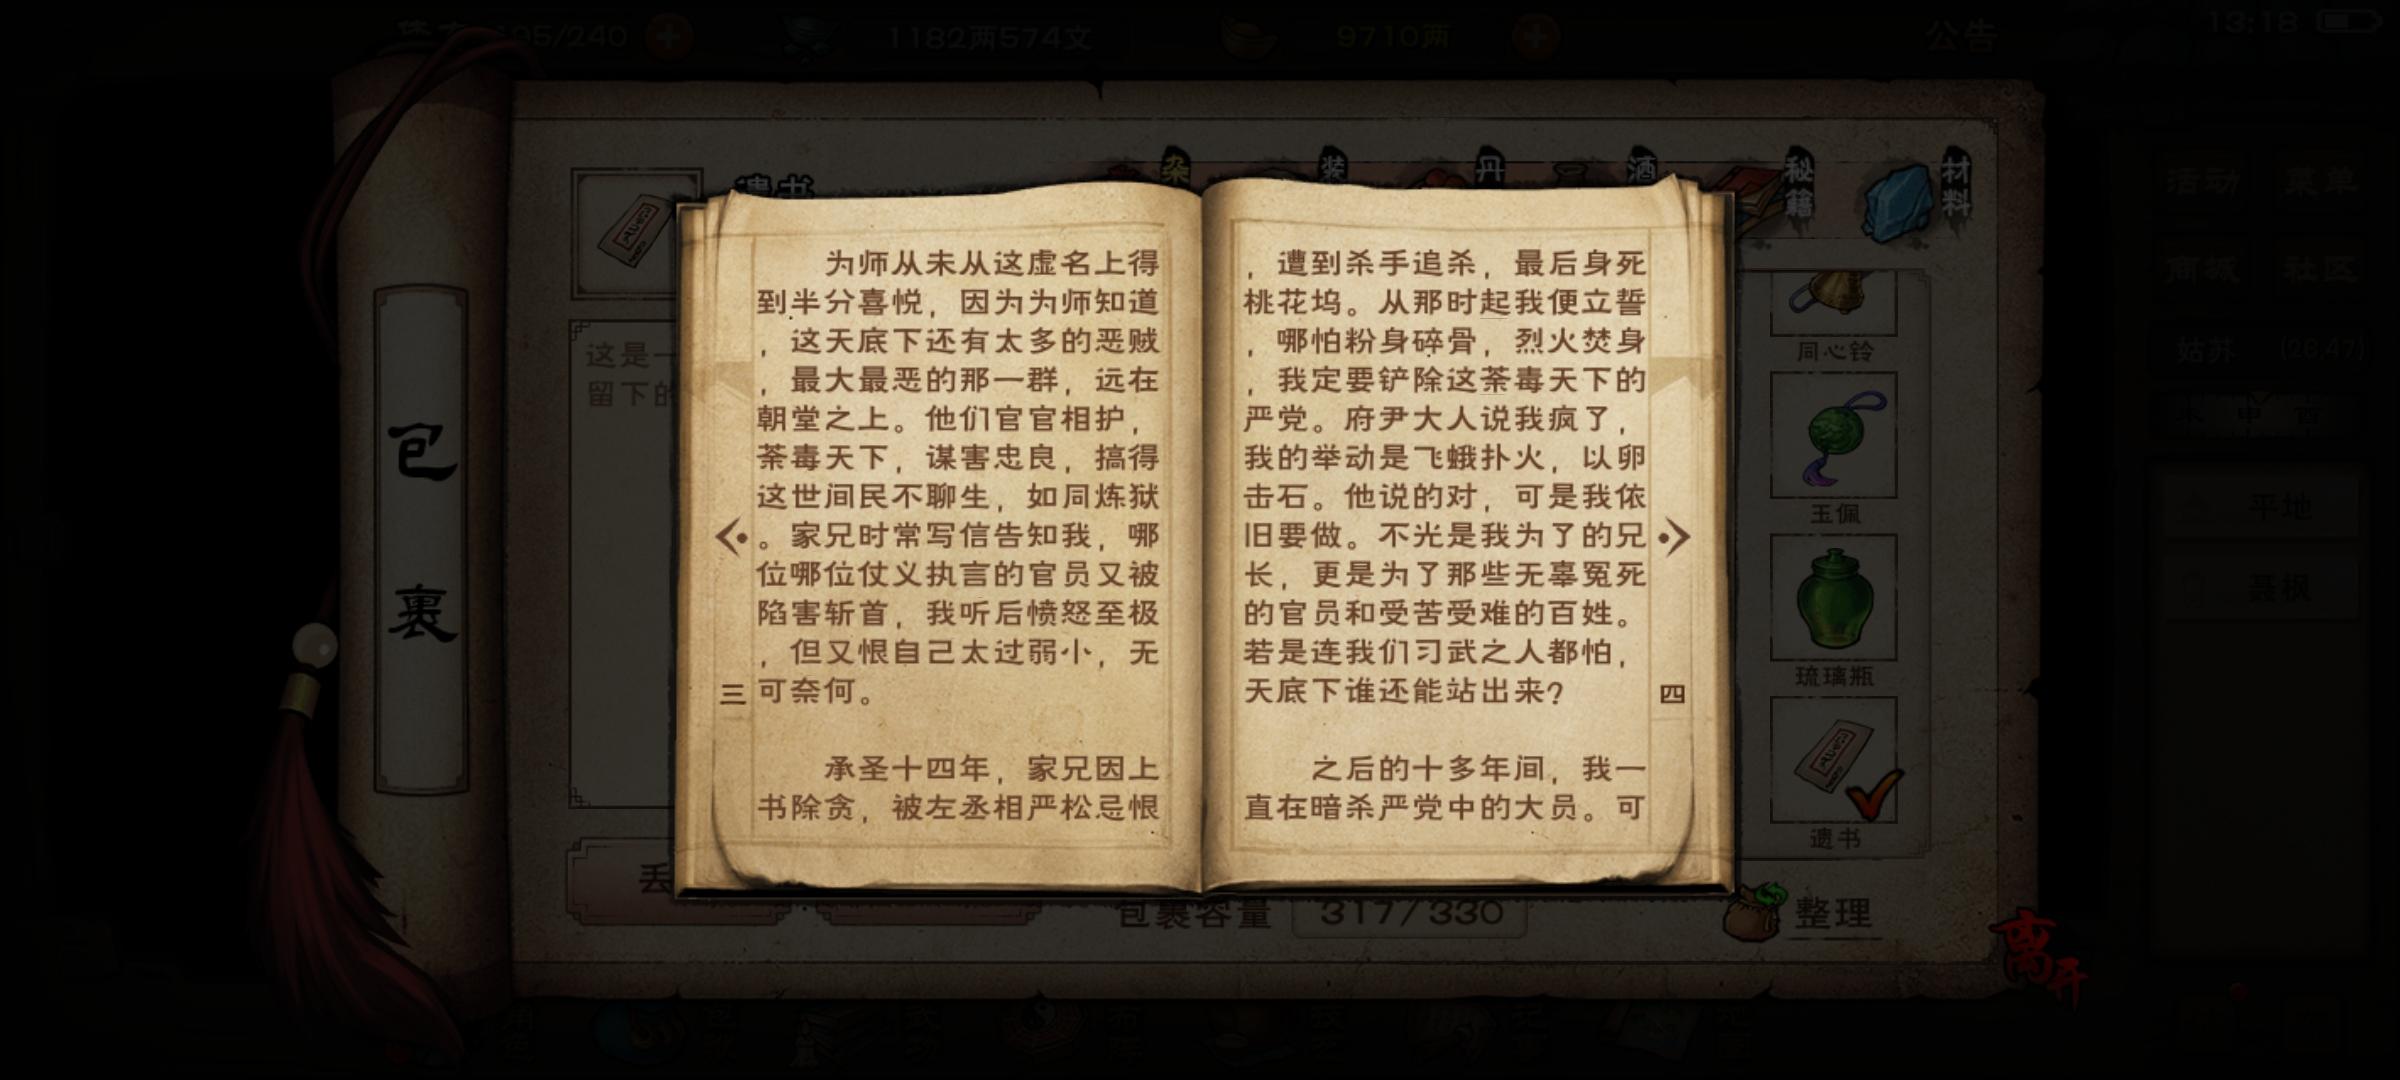 195/240
1182两574文
9710两
公告
13:18
遗书
杂
装
丹
酒
秘籍
材料
活动
菜单
商城
社区
姑苏
(26,47)
未 申 酉
平地
聂枫
这是一
留下的
包裹
为师从未从这虚名上得
到半分喜悦，因为为师知道
，这天底下还有太多的恶贼
，最大最恶的那一群，远在
朝堂之上。他们官官相护，
荼毒天下，谋害忠良，搞得
这世间民不聊生，如同炼狱
。家兄时常写信告知我，哪
位哪位仗义执言的官员又被
陷害斩首，我听后愤怒至极
，但又恨自己太过弱小，无
可奈何。
承圣十四年，家兄因上
书除贪，被左丞相严松忌恨
三
，遭到杀手追杀，最后身死
桃花坞。从那时起我便立誓
，哪怕粉身碎骨，烈火焚身
，我定要铲除这荼毒天下的
严党。府尹大人说我疯了，
我的举动是飞蛾扑火，以卵
击石。他说的对，可是我依
旧要做。不光是我为了的兄
长，更是为了那些无辜冤死
的官员和受苦受难的百姓。
若是连我们习武之人都怕，
天底下谁还能站出来？
之后的十多年间，我一
直在暗杀严党中的大员。可
四
同心铃
玉佩
琉璃瓶
遗书
丢
包裹容量
317/330
整理
离开